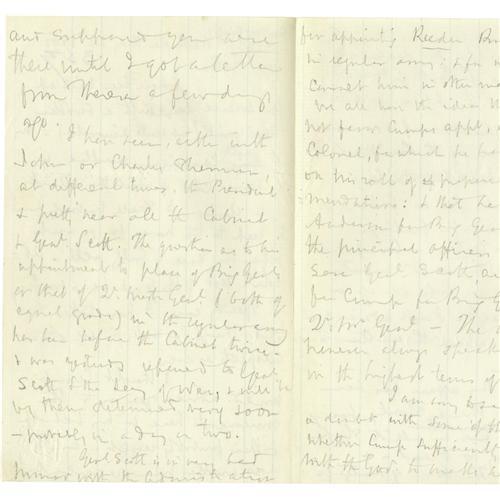 and supposed you were
there until I got a letter
from Theresa a few days
ago. I have seen, either with
John or Charles Sherman,
at different times, the President
& pretty near all the Cabinet
& Genl. Scott. The question as to his
appointment to place of Brig Genl
or that of Qr Mastr Genl (both of
equal grade) in the regular army
has been before the Cabinet twice
& was yesterday referred to Genl
Scott & the Secy of War, & will be
by them determined very soon
– probably in a day or two.
Genl Scott is in very bad
humor with the Administration
for appointing Reeder Bri
in regular army: & for
him in other
We are now the idea th
not favor Cumps appt.
Colonel, for which he
on his roll of
mendations: & that he
Anderson for Brig Gen
the principal officers
save Genl Scott, a
for Cump for Brig G
Qr Mr Genl – The
always speak
in the highest terms of
I am
a doubt with some of th
whether Cump sufficiently
with the Gov. to